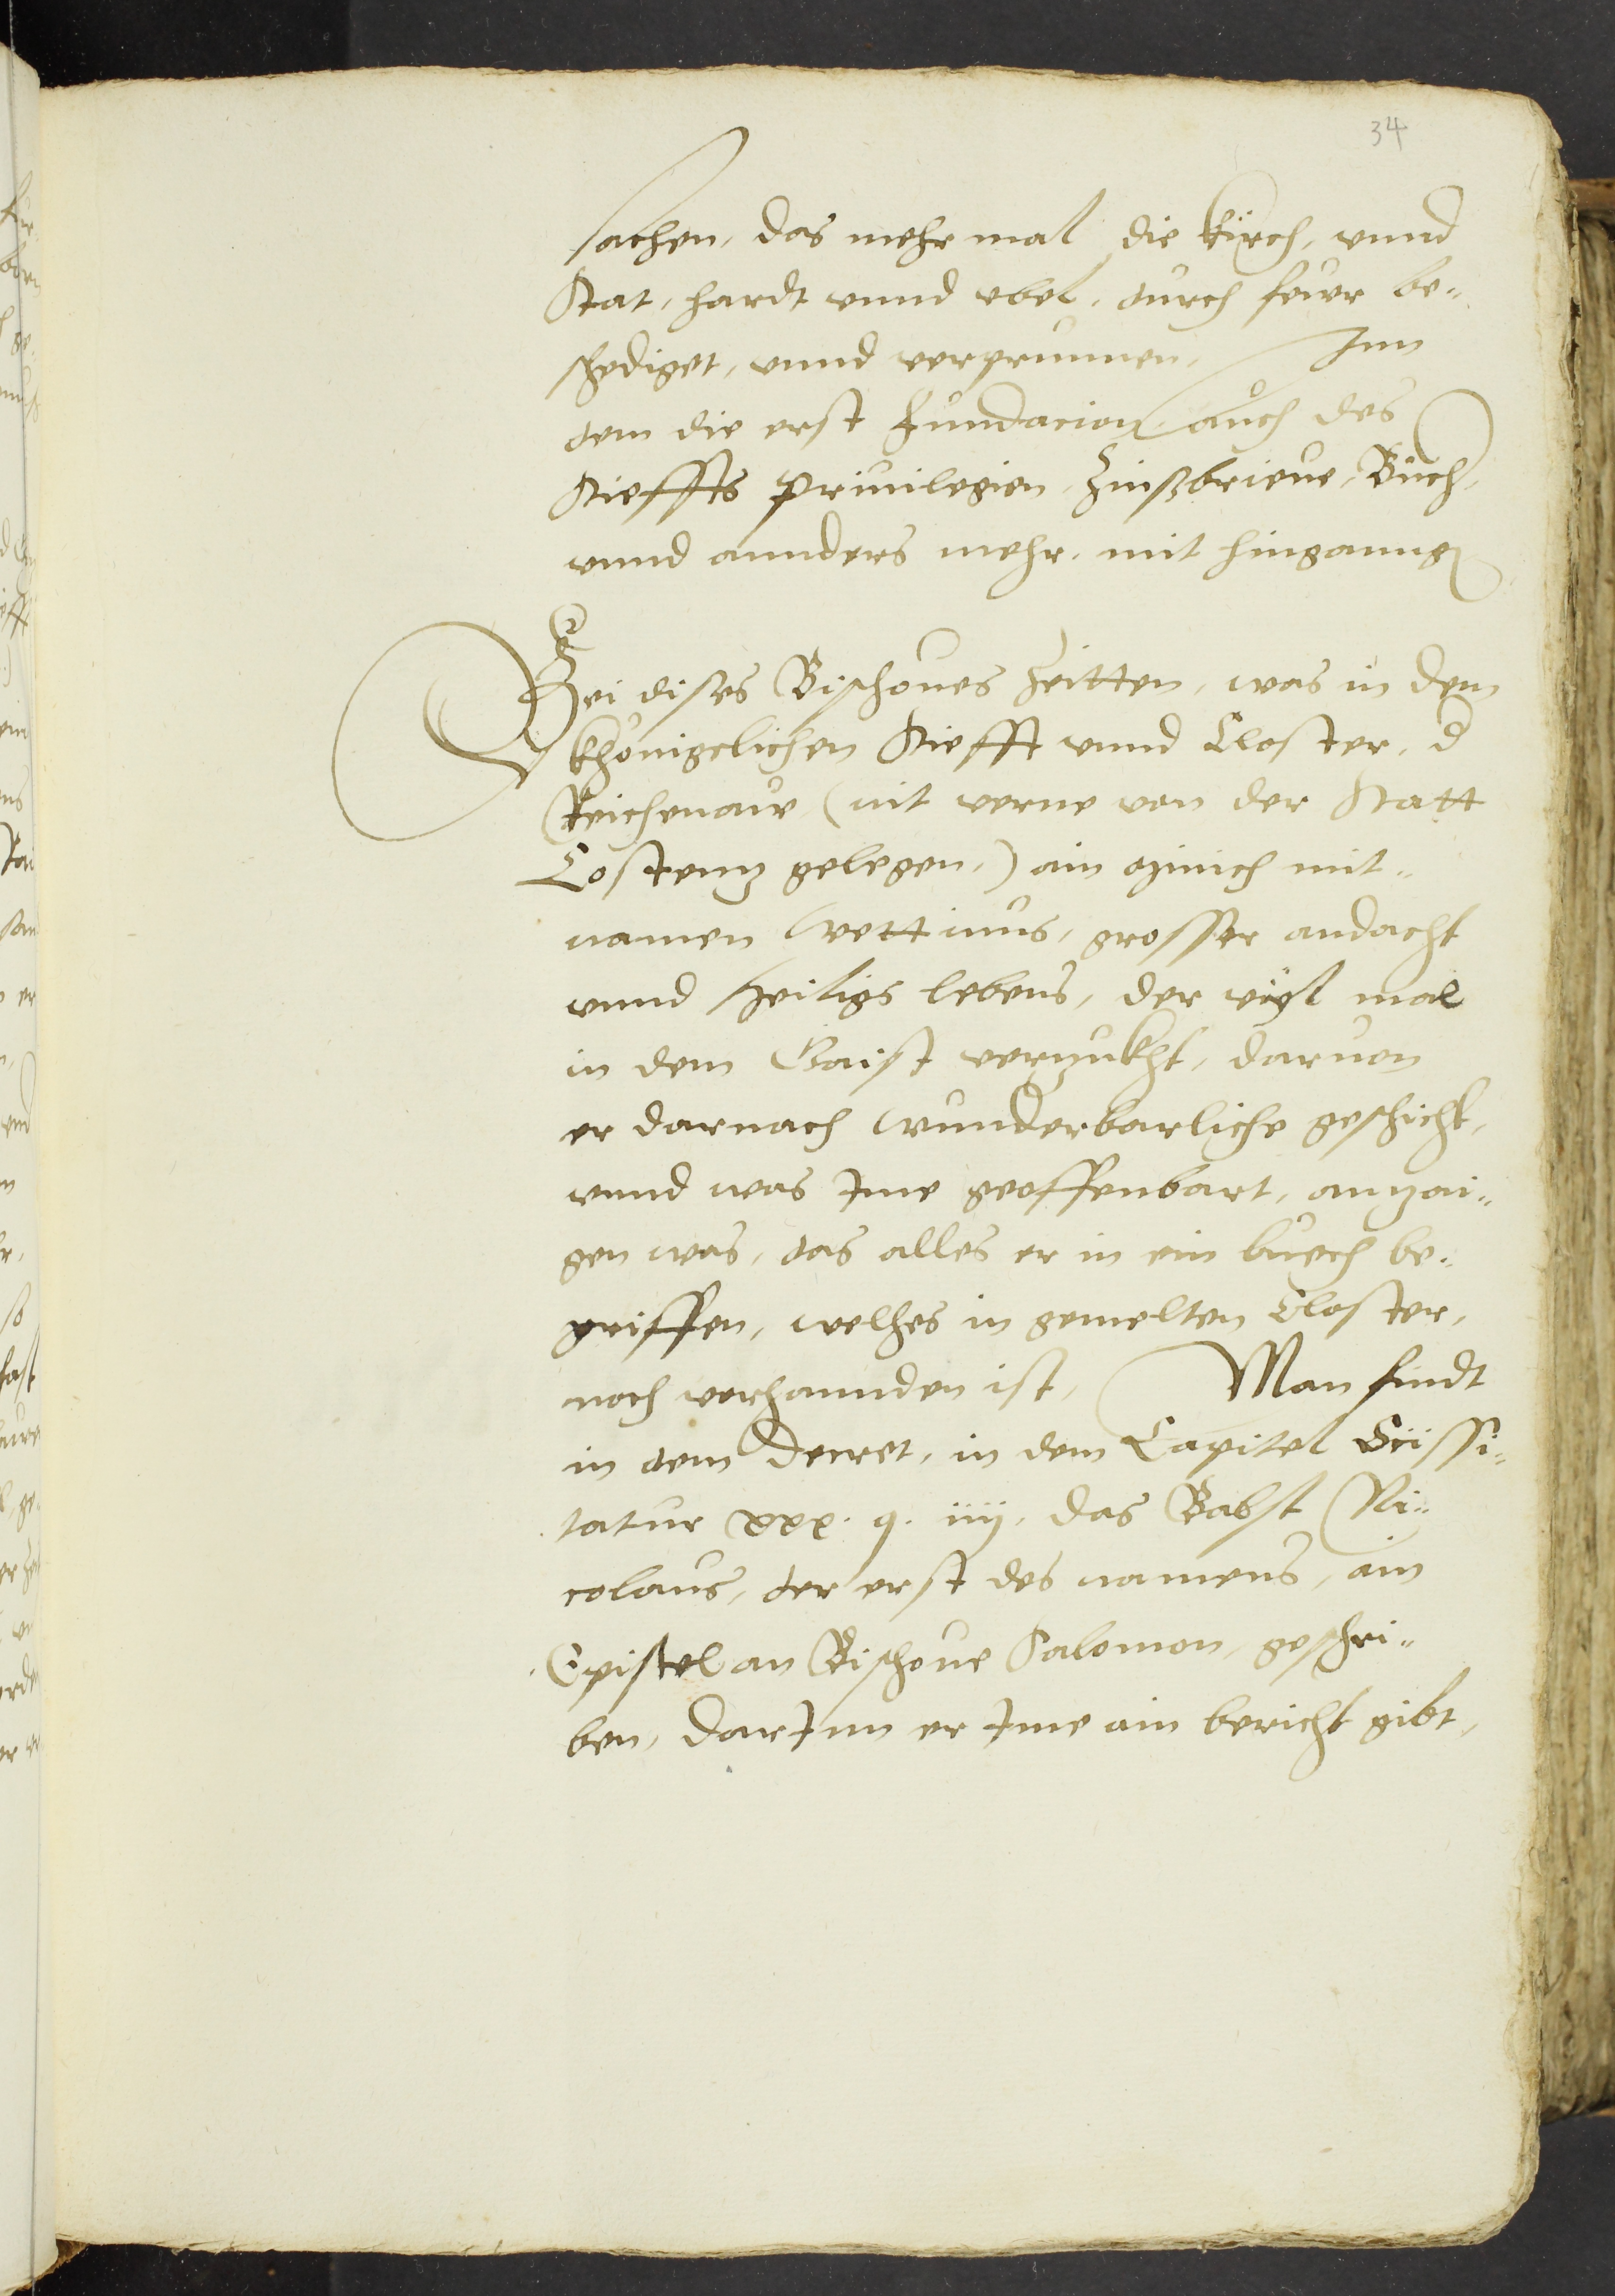 34
sachen, das mehr mal die kirch, vnnd
Stat, hardt vnnd vbel, durch feuer be-
schediget, vnnd verprunnen, Inn
dem die erst Fundacion, auch des
Stieffts Priuilegien, Zinßbrieue, Buch,
vnnd annders mehr, mit hinganng
Bei dises Bischoues Zeitten, was in dem
khönigelichen Stiefft vnnd Closter, d
Reichenaw, (nit verne von der Statt
Costenz gelegen,) ain münich mit-
namen Wettinus, grosser andacht
vnnd heiligs lebens, der vyl mal
in dem Gaist verzukht, daruon
er darnach wunderbarliche geschicht,
vnnd was Ime geoffenbart, anzai-
gen was, das alles er in ein buech be-
griffen, welhes in gemelten Closter,
noch verhannden ist, Man findt
in dem Decret, in dem Capitel Scissi-
tatur xxx. q. iiij, das Babst Ni-
colaus, der erst des namens, ain
Epistel an Bischoue Salomon, geschri-
ben, darInn er Ime ain bericht gibt,